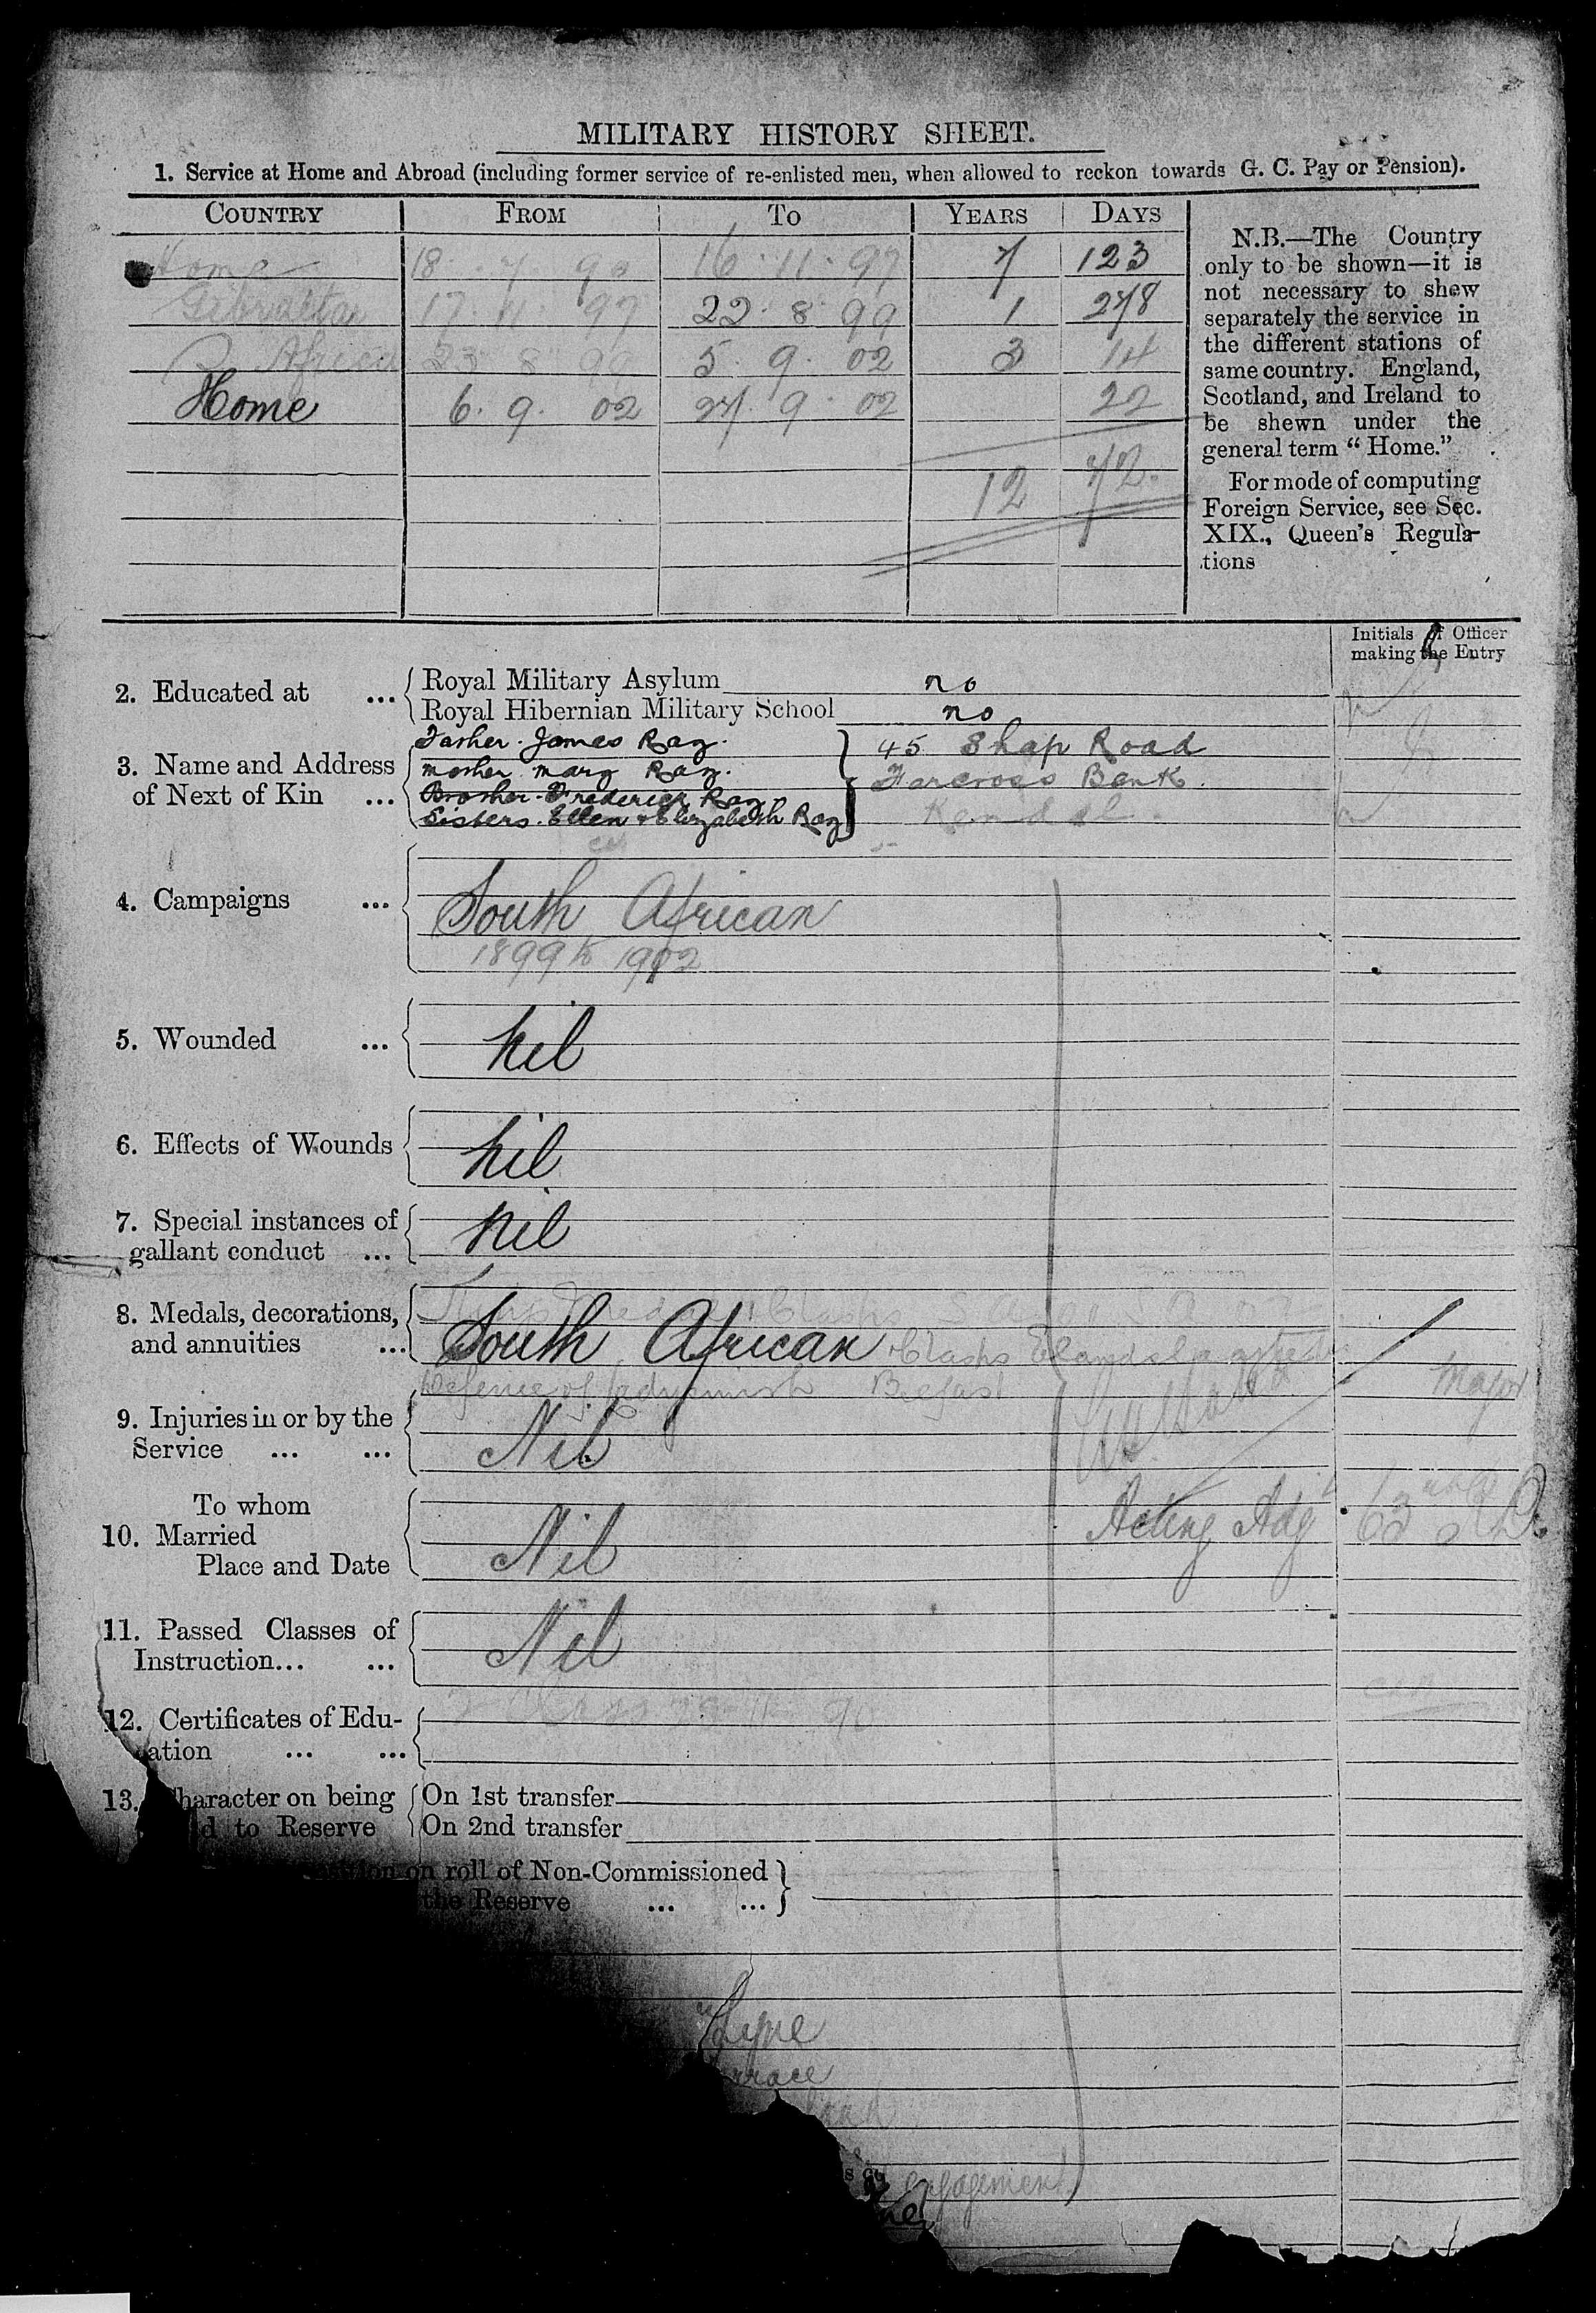 MILITARY HISTORY SHEET.
1. Service at Home and Abroad (including former service of re-enlisted men, when allowed to reckon towards G. C. Pay or Pension).
COUNTRY FROM TO YEARS DAYS
Home 18 . 7 90 16 . 11 . 97 7 123
Gibraltar 17 . 11 97 22 . 8 . 99 1 278
Africa 23 8 99 5 9 . 02 3 14
Home 6 . 9 . 02 27 . 9 . 02 22
12 72.
N.B.—The Country
only to be shown—it is
not necessary to shew
separately the service in
the different stations of
same country. England,
Scotland, and Ireland to
be shewn under the
general term “ Home.”
For mode of computing
Foreign Service, see Sec.
XIX., Queen's Regula-
tions
Initials of Officer
making the Entry
2. Educated at ... Royal Military Asylum no
Royal Hibernian Military School no
3. Name and Address
of Next of Kin ...
Father. James Ray. 45 Shap Road
mother mary Ray. Farcross Bank.
Brother. Frederick Ray Kendal.
Sisters. Ellen & Elizabeth Ray
4. Campaigns ... South African
1899 to 1902
5. Wounded ... Nil
6. Effects of Wounds Nil
7. Special instances of
gallant conduct ... Nil
8. Medals, decorations,
and annuities ...
South African Clasps Elandslaagte
Defence of Ladysmith Belfast
Major
9. Injuries in or by the
Service ... ... Nil
To whom
10. Married
Place and Date
Nil Acting Adjt 63
11. Passed Classes of
Instruction... ... Nil
12. Certificates of Edu-
ation ... ...
Class 11 90
13. Character on being
d to Reserve
On 1st transfer
On 2nd transfer
on roll of Non-Commissioned
the Reserve ... ...
engagement